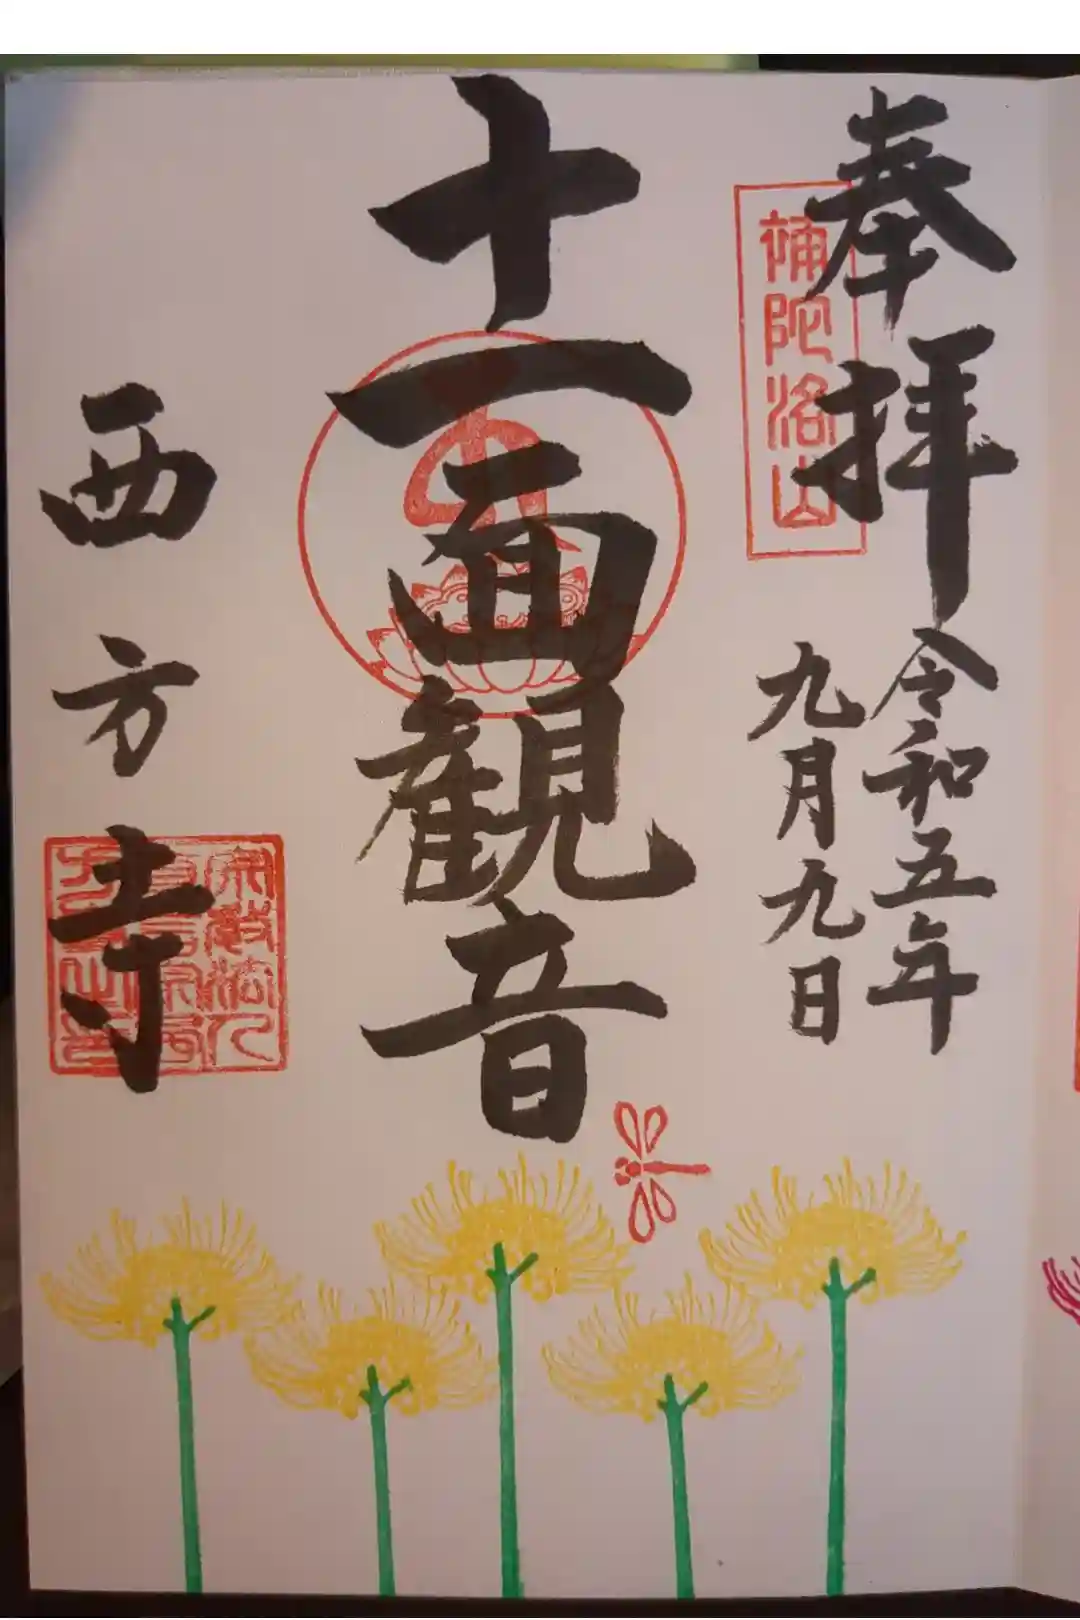 奉拝
補陀洛山
令和五年
九月九日
十一面観音
西方寺